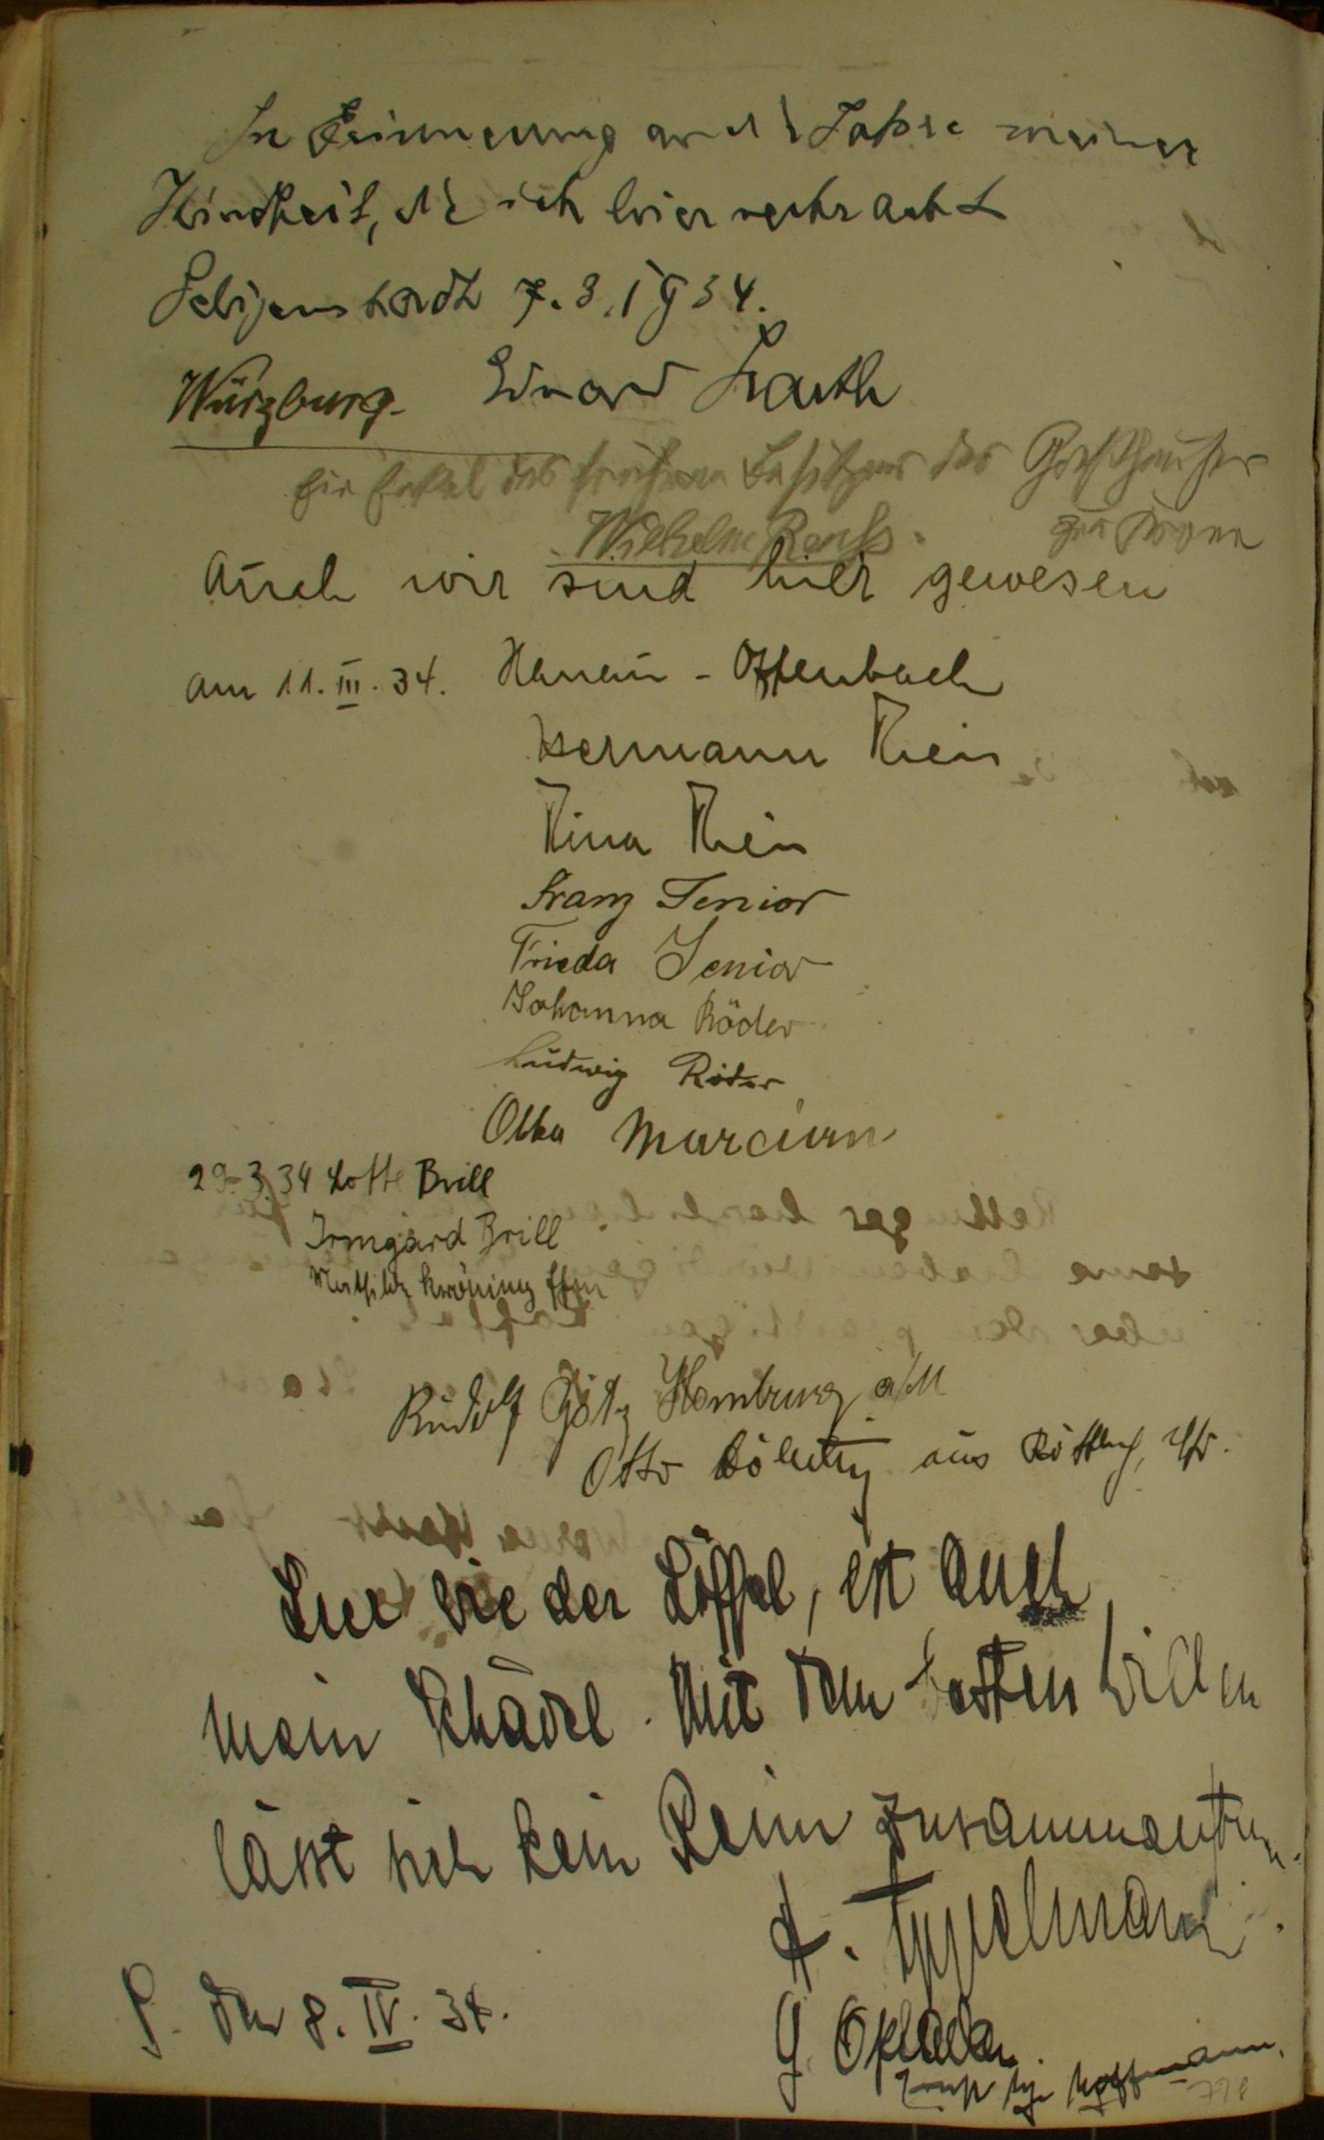 In Erinnerung an die Jahre meiner
Kindheit, die ich hier verbracht
Seligenstadt 7.3.1934.
Würzburg. Eduard
Ein Enkel des früheren Besitzers des Gasthauses
Wilhelm zur Krone
Auch wir sind hier gewesen
am 11. III. 34. Hanau - Offenbach
Hermann Rhein
Rina Rhein
Franz Senior
Frieda Senior
Johanna Röder
Ludwig Röder
Otto Marcian
29.3.34 Lotte Brill
Irmgard Brill
Mathilde Kröning
Rudolf Götz Homburg a/M
Otto aus
Leer wie der Löffel, ist auch
mein Schädel. Mit dem besten Willen
lässt sich kein Reim zusammen
A. Appelmann.
S. den 8. IV. 34.
G.
Hoffmann.